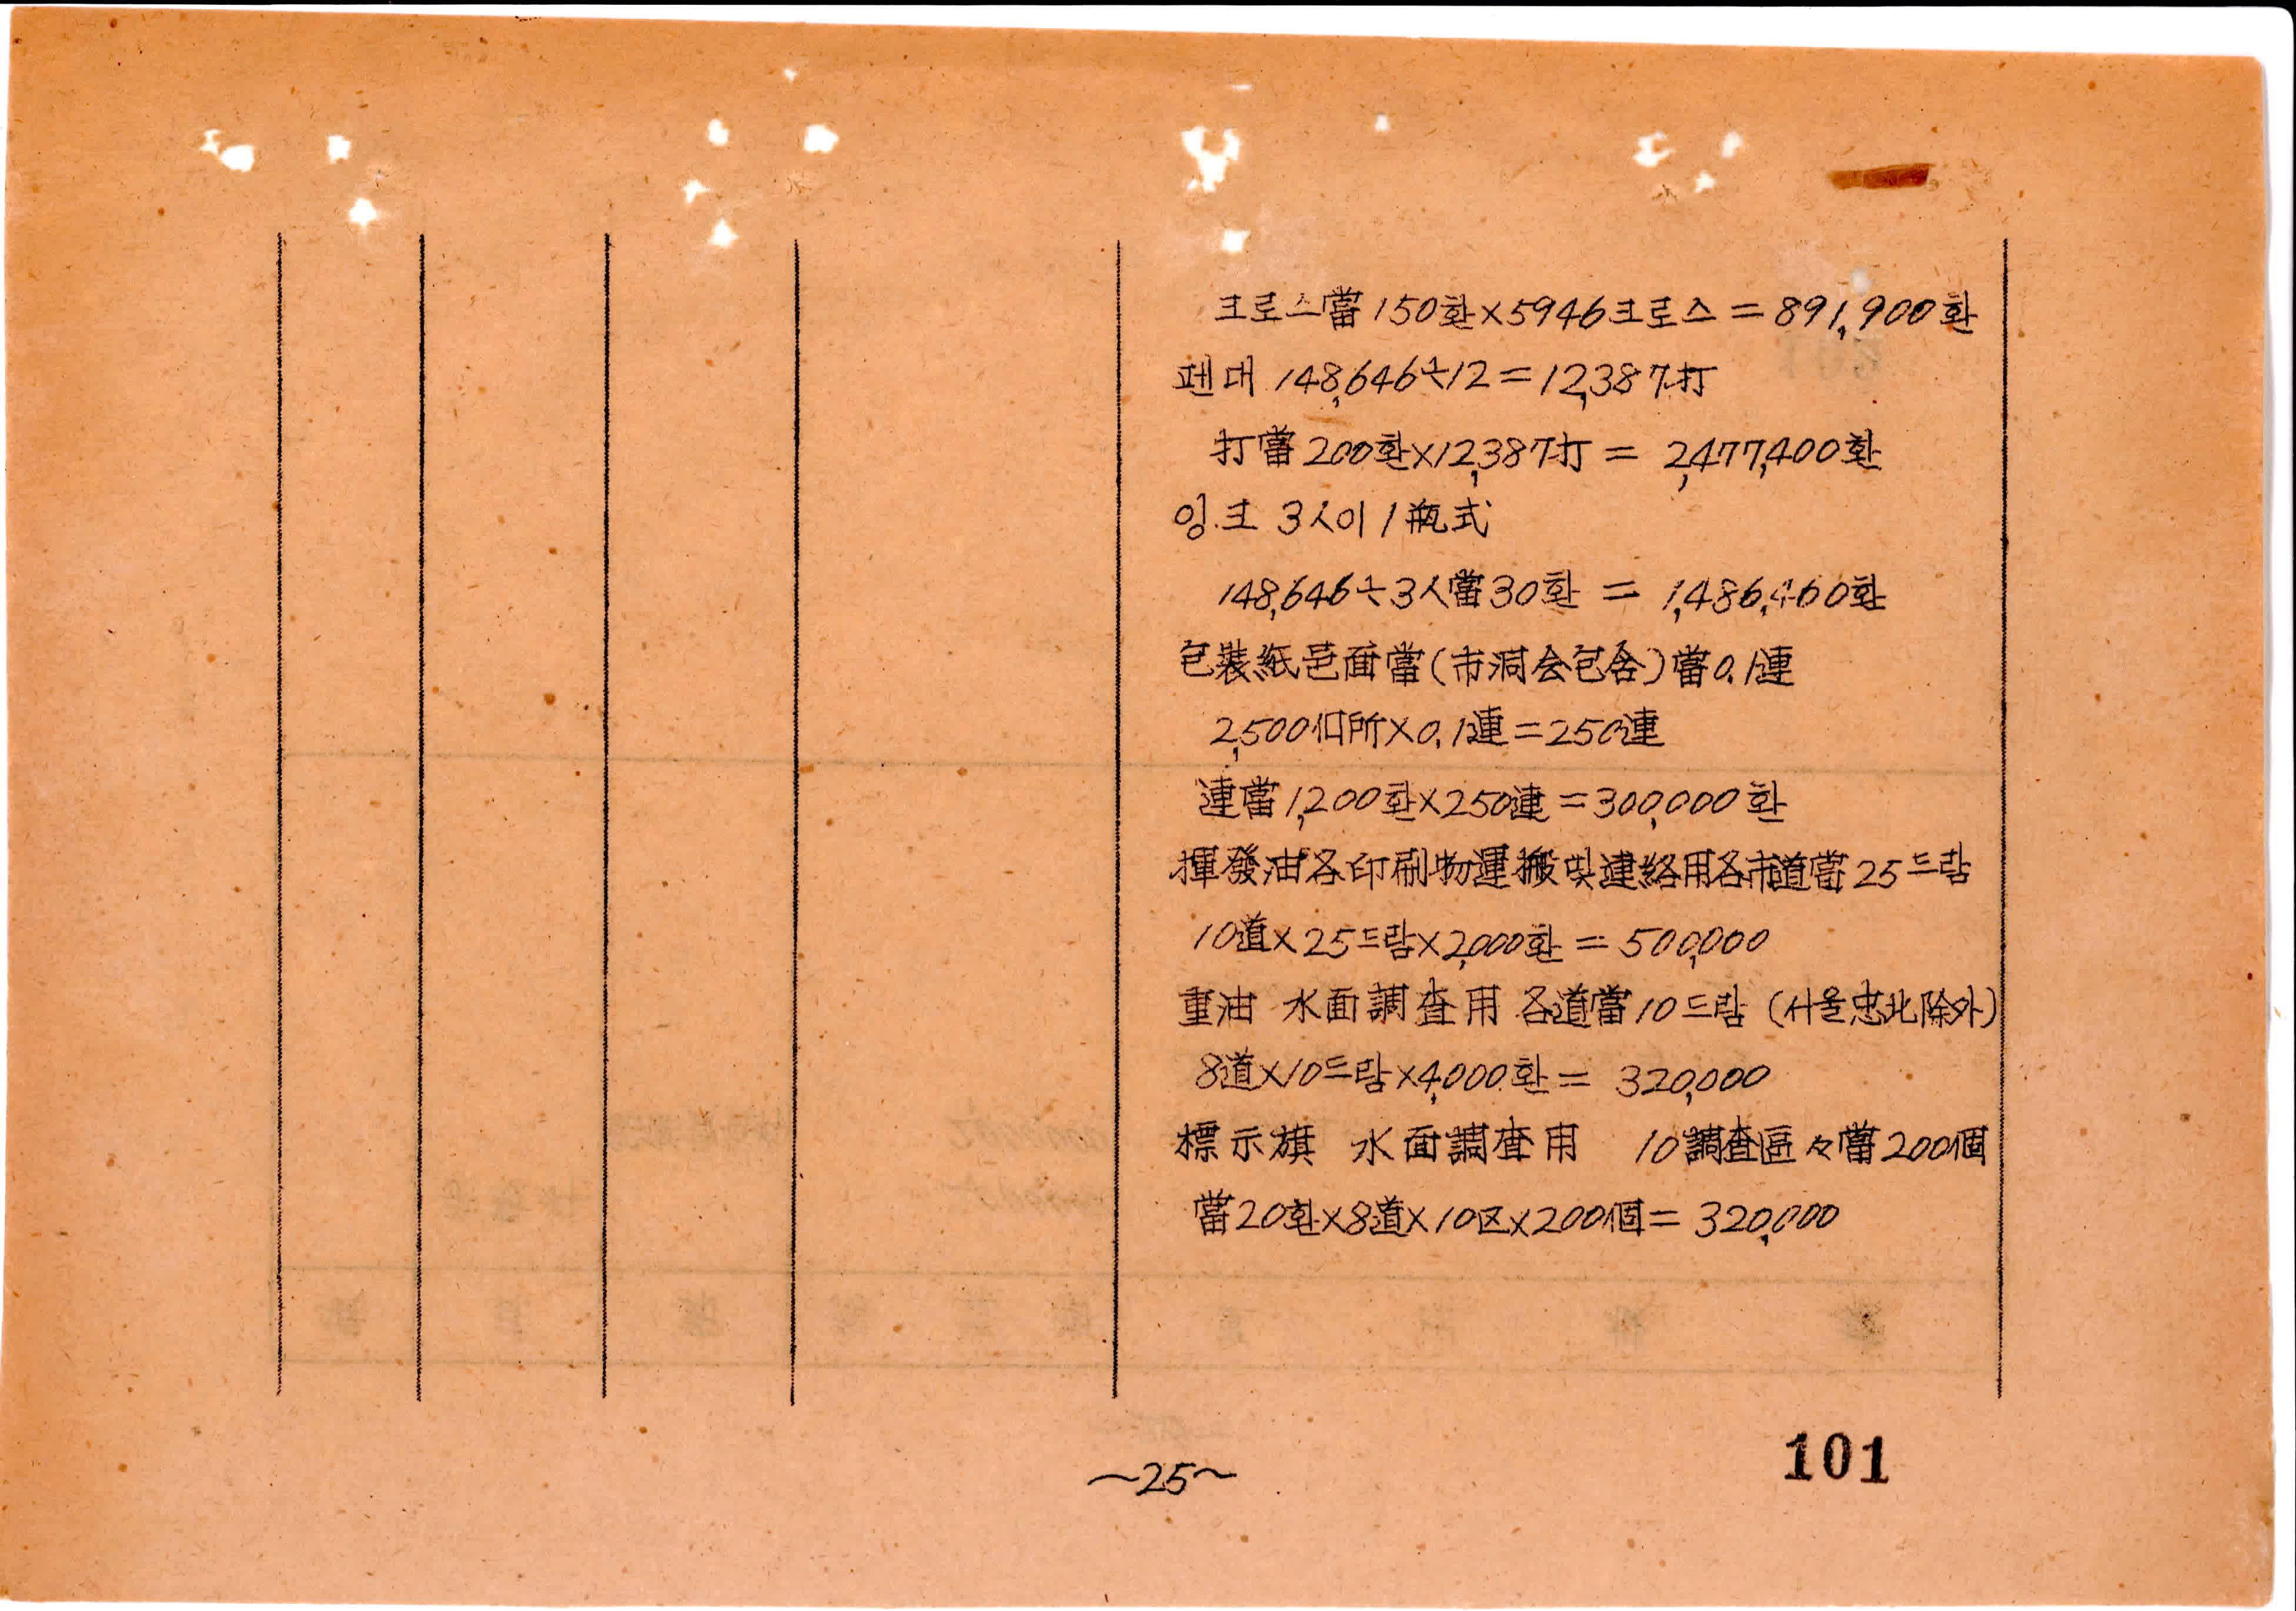 크로스當150환×5946크로스=891,900환
펜대 148,646÷12=12,387打
打當200환×12,387打= 2,477,400환
잉크 3人이1甁式
148,646÷3人當30환 = 1,486,460환
包裝紙邑面當(市洞会包含)當0.1連
2,500個所×0.1連=250連
連當1,200환×250連=300,000환
揮發油各印刷物運搬및連絡用各市道當25드람
10道×25드람×2,000환= 500,000
重油 水面調査用 各道當10드람 (서울忠北除外)
8道×10드람×4,000환= 320,000
標示旗 水面調査用 10調査區々當200個
當20환×8道×10区×200個= 320,000
~25~
101